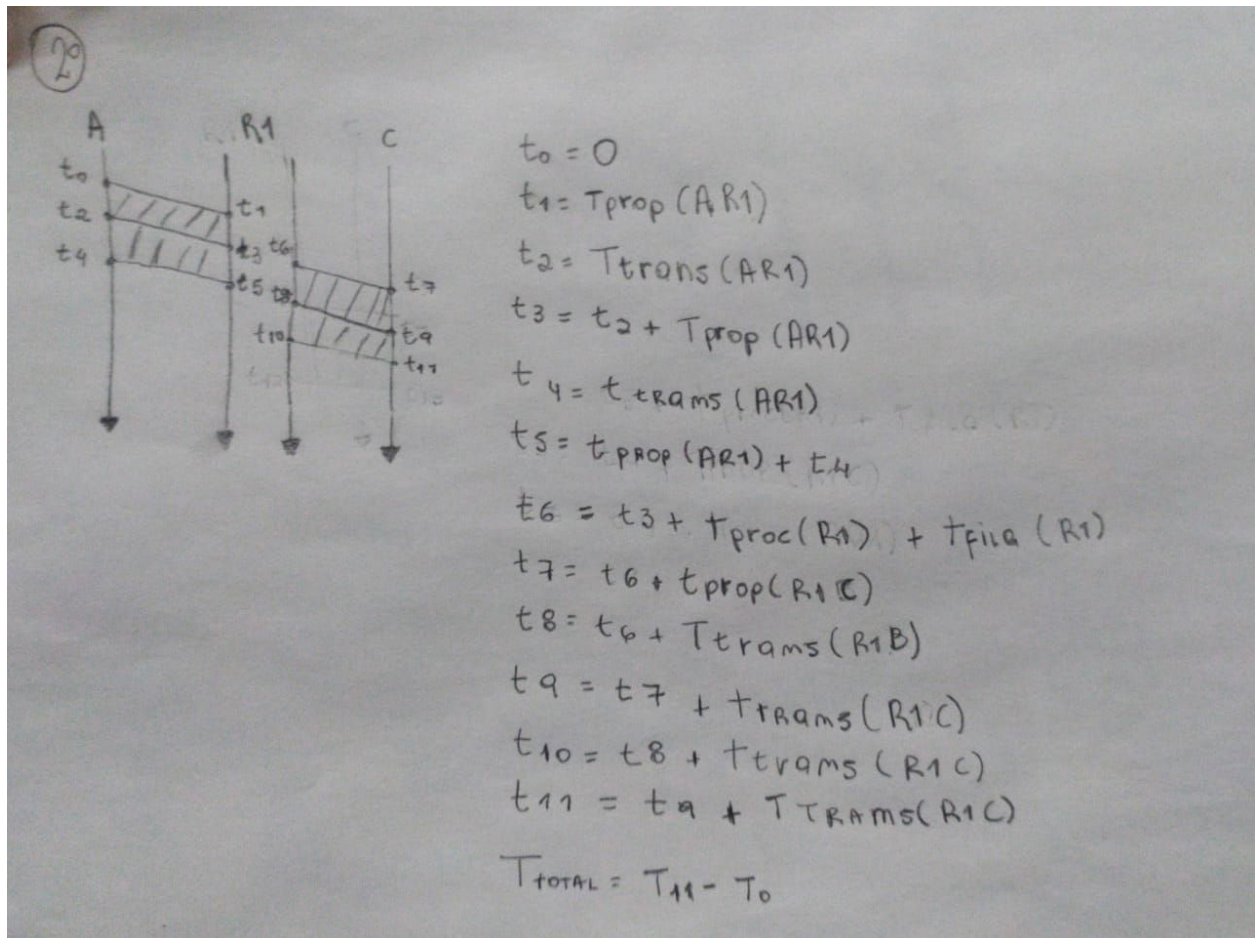 2º
A R1 C
t0
t2 t1
t3 t6
t4
t5 t8 t7
t10 t9
t11
t0 = 0
t1 = Tprop (AR1)
t2 = Ttrans (AR1)
t3 = t2 + Tprop (AR1)
t4 = t tRams (AR1)
t5 = t PROP (AR1) + t4
t6 = t3 + Tproc(R1) + Tfila (R1)
t7 = t6 + tprop(R1C)
t8 = t6 + Ttrams (R1B)
t9 = t7 + TtRams (R1C)
t10 = t8 + Ttrams (R1C)
t11 = t9 + TTRAms(R1C)
TTOTAL = T11 - T0